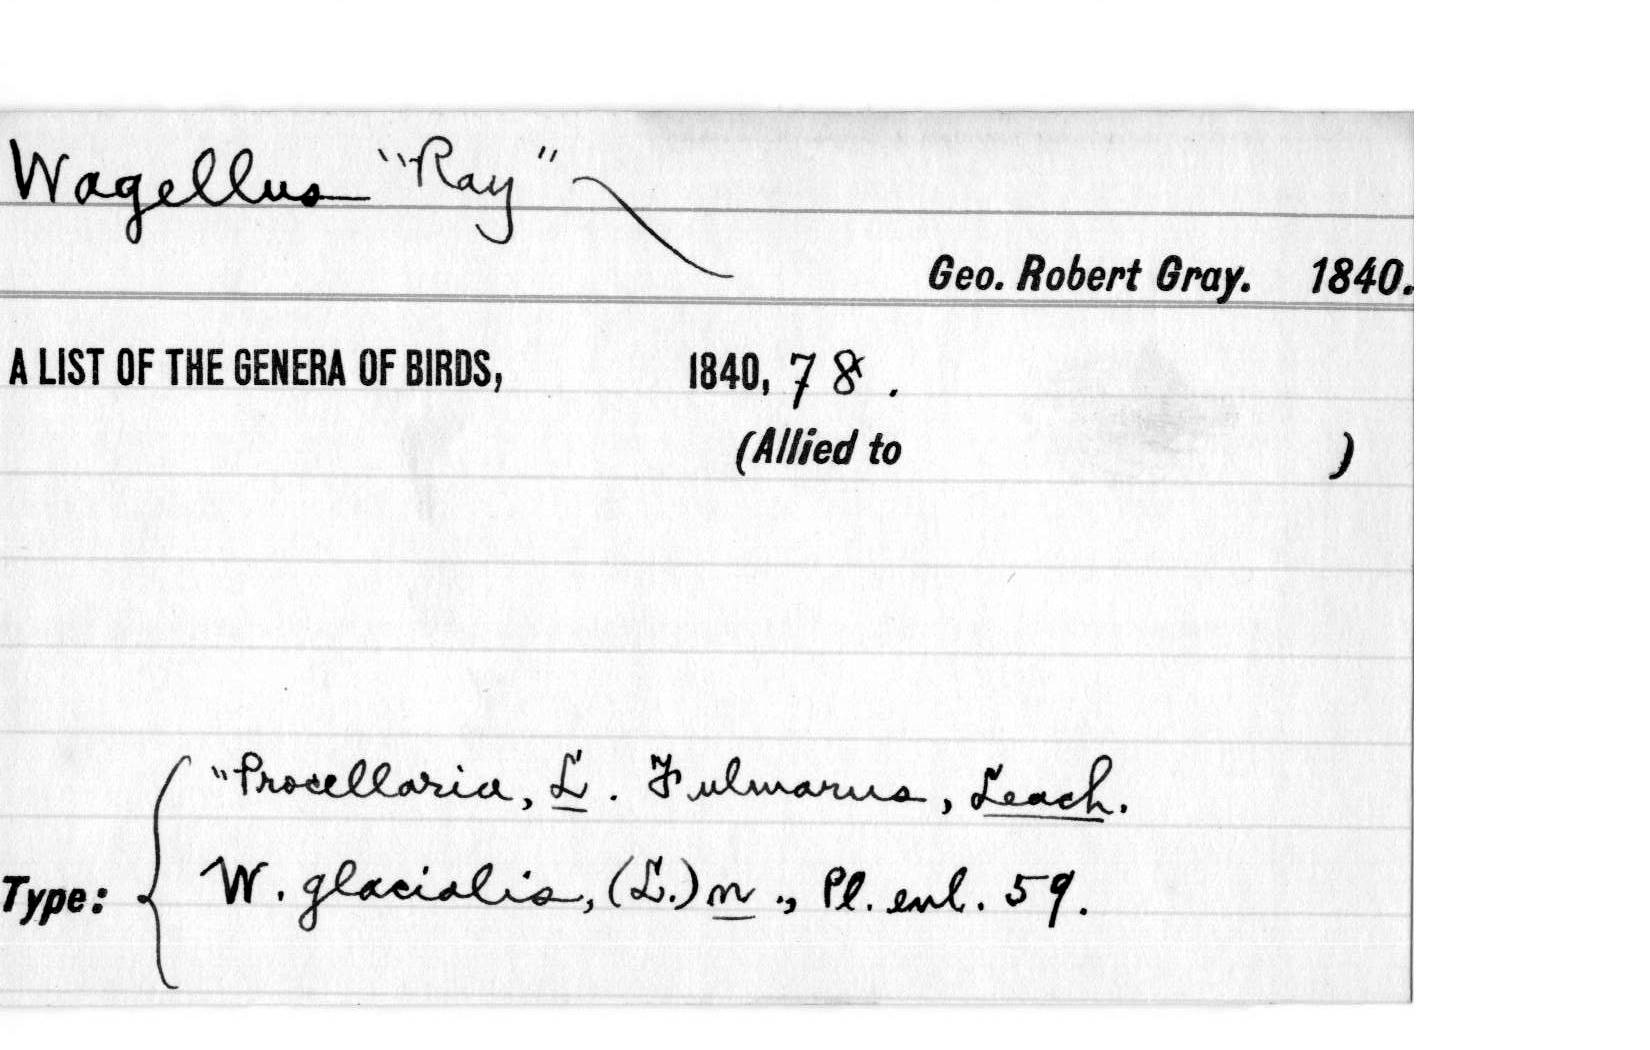 Wagellus "Ray"
Geo. Robert Gray. 1840.
A LIST OF THE GENERA OF BIRDS, 1840, 78.
(Allied to )
"Procellaria, L. Fulmarus, Leach.
Type: W. glacialis, (L.) n., Pl. enl. 59.